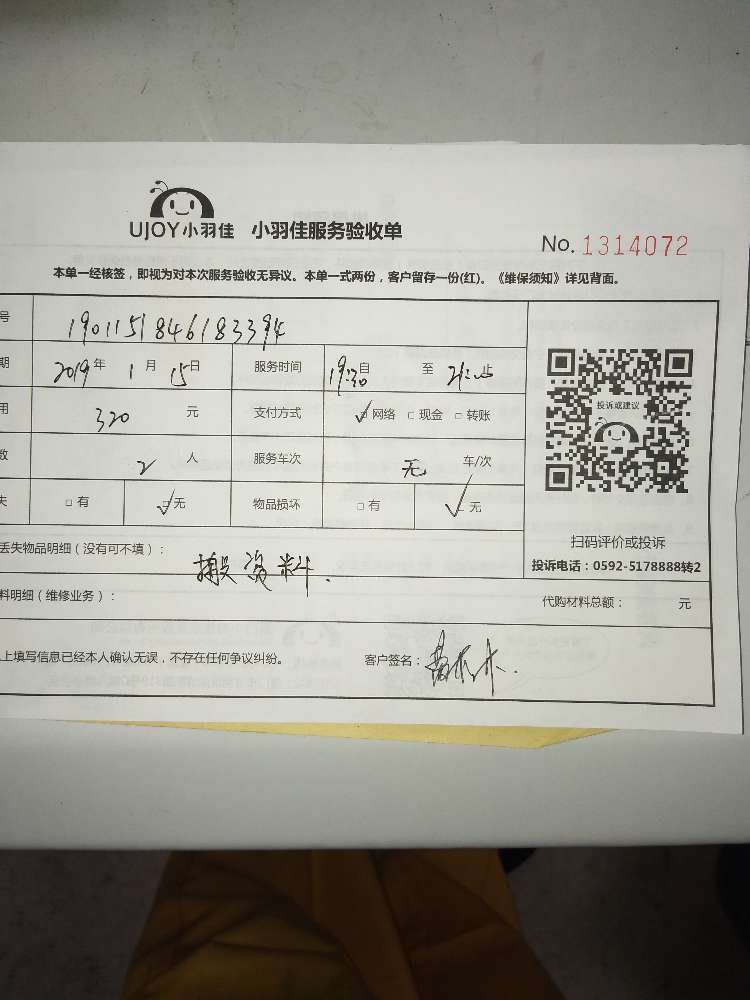 UJOY小羽佳 小羽佳服务验收单
No. 1314072
本单一经核签，即视为对本次服务验收无异议。本单一式两份，客户留存一份(红)。《维保须知》详见背面。
号 1901151846183394
期 2019 年 1 月 15 日 服务时间 19:30 自 至 21: 止
用 320 元 支付方式 ✓ 网络 □ 现金 □ 转账
投诉或建议
数 2 人 服务车次 无 车/次
失 □ 有 ✓ 无 物品损坏 □ 有 ✓ 无
扫码评价或投诉
丢失物品明细（没有可不填）： 搬资料.
投诉电话：0592-5178888转2
料明细（维修业务）： 代购材料总额： 元
上填写信息已经本人确认无误，不存在任何争议纠纷。 客户签名：